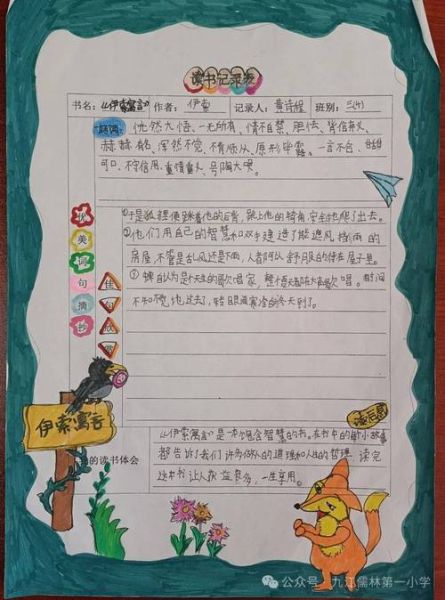 读书记录表
书名:《伊索寓言》 作者: 伊索 记录人: 黄诗程 班别: 三(4)
好词: 恍然大悟、一无所有、情不自禁、胆怯、背信弃义
赫赫有名、浑然不觉、不情愿从、原形毕露、一言不合、甜甜
可口、不守信用、重情重义、号啕大哭。
优美词句摘抄
佳句欣赏
①于是狐狸便踩着他的后背,跳上他的犄角,安全地爬了出去。
②他们用自己的智慧和双手建造了能遮风挡雨的
房屋,不管是刮风还是下雨,人都可以舒服的待在屋子里。
③蝉自认为是个天生的歌唱家,整个夏天都在大声歌唱。时间
不知不觉地过去了,转眼间寒冷的冬天到了。
伊索寓言
读后感
我的读书体会
《伊索寓言》是一本饱含智慧的书。在书中的每个小故事
都告诉了我们许多做人的道理和人生的哲理。读完
这本书让人获益良多,一生享用。
公众号·九江儒林第一小学